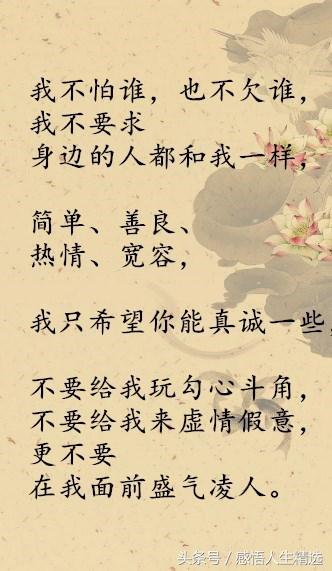 我不怕谁，也不欠谁，
我不要求
身边的人都和我一样，
简单、善良、
热情、宽容，
我只希望你能真诚一些，
不要给我玩勾心斗角，
不要给我来虚情假意，
更不要
在我面前盛气凌人。
头条号 / 感悟人生精选